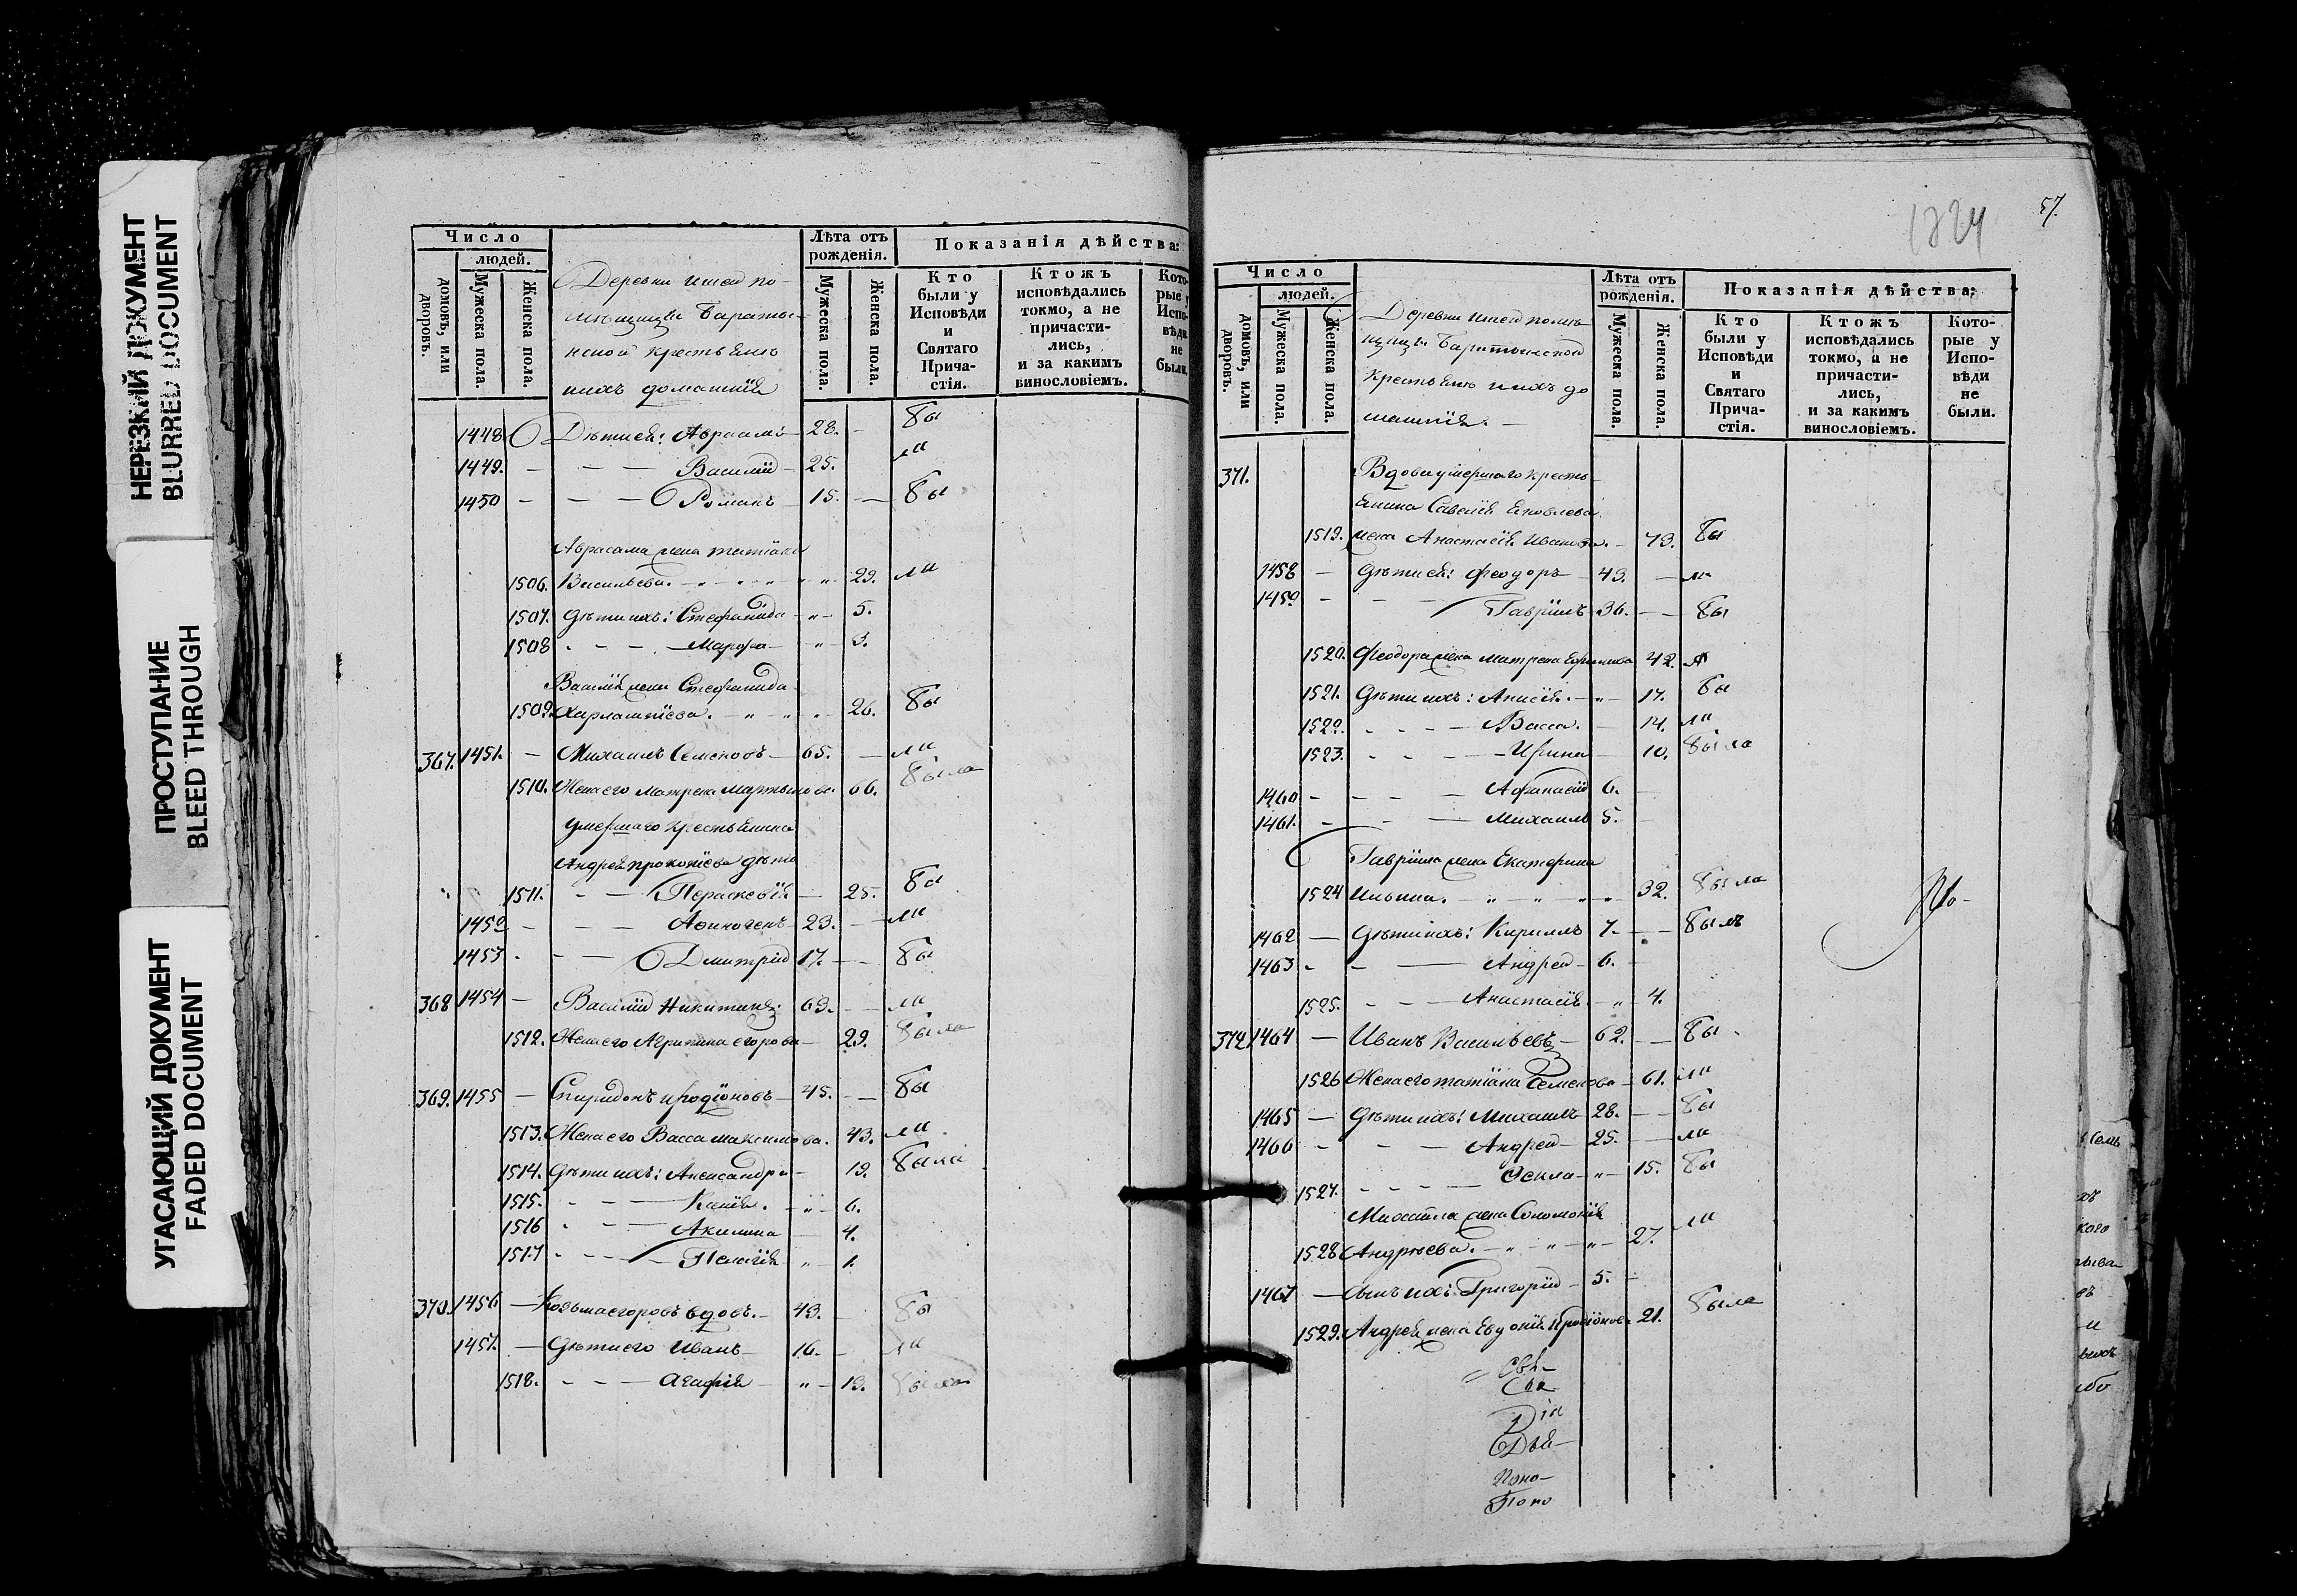 НЕРЕЗКИЙ ДОКУМЕНТ
BLURRED DOCUMENT
ПРОСТУПАНИЕ
BLEED THROUGH
УГАСАЮЩИЙ ДОКУМЕНТ
FADED DOCUMENT
Число
людей.
домовъ, или дворовъ.
Мужеска пола.
Женска пола.
Деревни
крестьяне
ихъ домашнія
Лѣта отъ рожденія.
Мужеска пола.
Женска пола.
Показанія дѣйства:
Кто были у Исповѣди и Святаго Прича-стія.
Ктожъ исповѣдались токмо, а не причасти-лись, и за какимъ винословіемъ.
Кото-рые у Испо-вѣди не были.
1448 Дѣти ея: Авраамъ 28. — бы
1449. — — — Василій — 25. ли
1450 — — — Романъ 15. — бы
Авраама жена татіана
1506. Васильева. 29. ли
1507. Дѣти ихъ: Стефанида 5.
1508 Марфа 3.
Василія жена Стефанида
1509. Харлампіева. 26. бы
367. 1451. — Михаилъ Семеновъ — 65. — ли
1510. Жена его Матрена мартынова. 66. была
умершаго крестьянина
Андрея прокопіева дѣти
1511. — — Параскевія — 25. бы
1452 — — — Афиногенъ 23. — ли
1453 — — Дмитрій 17. — бы
368 1454 — Василій Никитинъ 69. — ли
1512. Жена его Агрипина егорова — 29. была
369. 1455 — Спиридонъ иродіоновъ — 45. — бы
1513. Жена его Васса максимова. 43. ли
1514. Дѣти ихъ: Александра — 19. была
1515. Ксенія. 6.
1516 Акилина 4.
1517 Пелагія 1.
370. 1456 — Козьма егоровъ вдовъ. — 43. бы
1457. — Дѣти его Иванъ 16. — ли
1518. — — — Агафія 19. была
1824
57.
Число
людей.
домовъ, или дворовъ.
Мужеска пола.
Женска пола.
Деревни
крестьяне ихъ до
машнія.
Лѣта отъ рожденія.
Мужеска пола.
Женска пола.
Показанія дѣйства:
Кто были у Исповѣди и Святаго Прича-стія.
Ктожъ исповѣдались токмо, а не причасти-лись, и за какимъ винословіемъ.
Кото-рые у Испо-вѣди не были.
371. Вдова умершаго кресть
янина Савелія Яковлева
1519. жена Анастасія Иванова. — 73. бы
1458 — Дѣти ея: Феодоръ — 43. — ли
1459 — — Гавріилъ 36. — бы
1520. Феодора жена матрена 42. ли
1521. Дѣти ихъ: Анисія. 17. бы
1522. Васса. 14. ли
1523. Ирина 10. была
1460 — — — Афанасій 6.
1461. — — — Михаилъ 5.
Гавріила жена Екатерина
1524 Ильина. 32. была
1462 — Дѣти ихъ: Кириллъ 7. — былъ
1463 — — Андрей — 6.
1525. — — — Анастасія — 4.
372 1464 — Иванъ Васильевъ — 62. — бы
1526 Жена его татіана Семенова — 61. ли
1465 — Дѣти ихъ: Михаилъ 28. — бы
1466 — — — Андрей — 25. — ли
1527. Фекла 15. бы
Михаила жена Соломонія
1528 Андрѣева. 27. ли
1467 — Сынъ ихъ Григорій — 5.
1529. Андрея жена Евдокія Иродіонова 21. была
Свя-
Свя
Діа
Дья-
Поно-
Поно